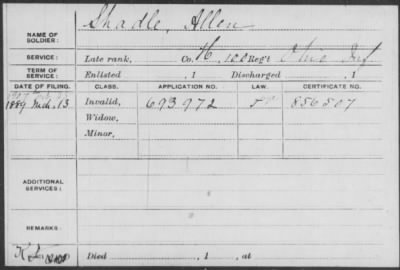 Shadle, Allen
NAME OF SOLDIER:
SERVICE: Late rank, Co. H, 100 Reg't Ohio Inf
TERM OF SERVICE: Enlisted , 1 Discharged , 1
DATE OF FILING. CLASS. APPLICATION NO. LAW. CERTIFICATE NO.
1889 Mch. 13 Invalid, 693972 856507
Widow,
Minor,
ADDITIONAL SERVICES:
REMARKS:
Died , 1 , at